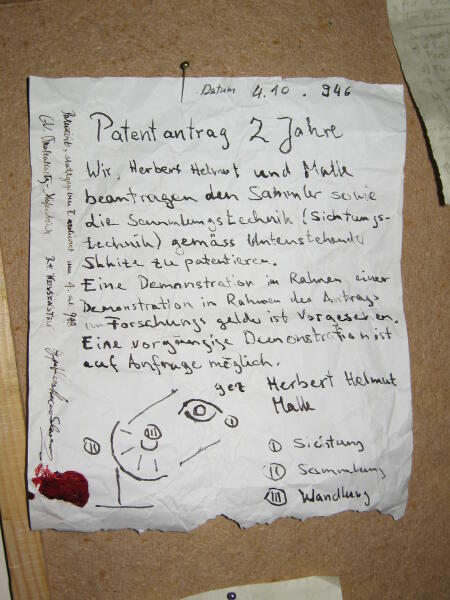 Datum 4.10.946
Patentantrag 2 Jahre
Wir, Herbert Helmut und Malk
beantragen den Sammler sowie
die Sammlungstechnik (Sichtungs-
technik) gemäss Untenstehender
Skkize zu patentieren.
Eine Demonstration im Rahmen einer
Demonstration im Rahmen des Antrags
um Forschungsgelder ist Vorgesehen.
Eine vorgängige Demonstration ist
auf Anfrage möglich.
gez Herbert Helmut
Malk
I Sichtung
II Sammlung
III Wandlung
I
II
III